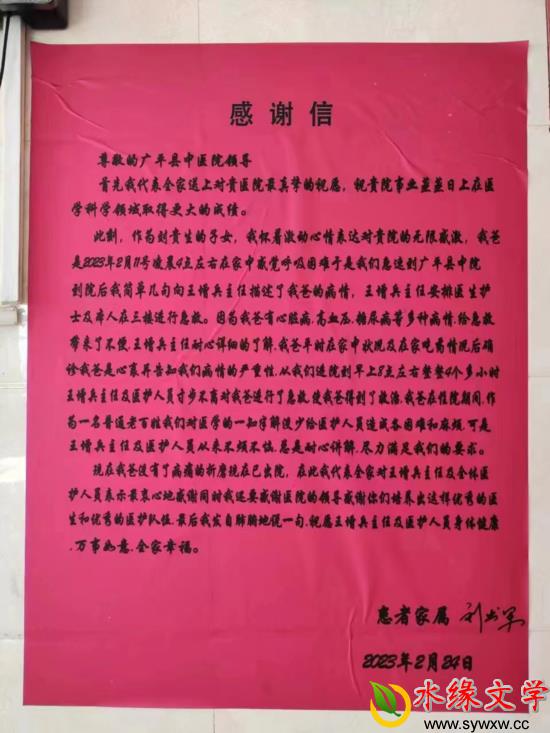 感谢信
尊敬的广平县中医院领导
首先我代表全家送上对贵医院最真挚的祝愿，祝贵院事业蒸蒸日上在医
学科学领域取得更大的成绩。
此刻，作为刘贵生的子女，我怀着激动心情表达对贵院的无限感激，我爸
是2023年2月11号凌晨4点左右在家中感觉呼吸困难于是我们急送到广平县中院
到院后我简单几句向王增兵主任描述了我爸的病情，王增兵主任安排医生护
士及本人在三楼进行急救。因为我爸有心脏病,高血压,糖尿病等多种病情,给急救
带来了不便.王增兵主任耐心详细的了解.我爸平时在家中状况及在家吃药情况后确
诊我爸是心衰并告知我们病情的严重性.从我们进院到早上8点左右整整4个多小时
王增兵主任及医护人员寸步不离对我爸进行了急救,使我爸得到了救治,我爸在住院期间,作
为一名普通老百姓我们对医学的一知半解没少给医护人员造成各困难和麻烦,可是
王增兵主任及医护人员从来不烦不恼.总是耐心讲解.尽力满足我们的要求。
现在我爸没有了病痛的折磨现在已出院，在此我代表全家对王增兵主任及全体医
护人员表示最衷心地感谢同时我还要感谢医院的领导感谢你们培养出这样优秀的医
生和优秀的医护队伍.最后我发自肺腑地说一句.祝愿王增兵主任及医护人员身体健康
.万事如意.全家幸福。
患者家属 刘书军
2023年2月24日
水缘文学
www.sywxw.cc